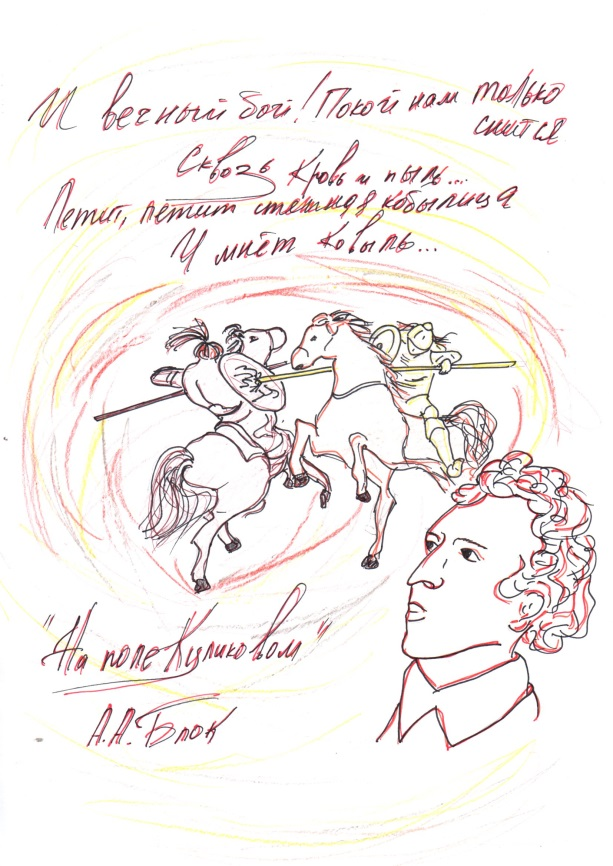 И вечный бой! Покой нам только
снится
Сквозь кровь и пыль...
Летит, летит степная кобылица
И мнёт ковыль...
"На поле Куликовом"
А.А. Блок